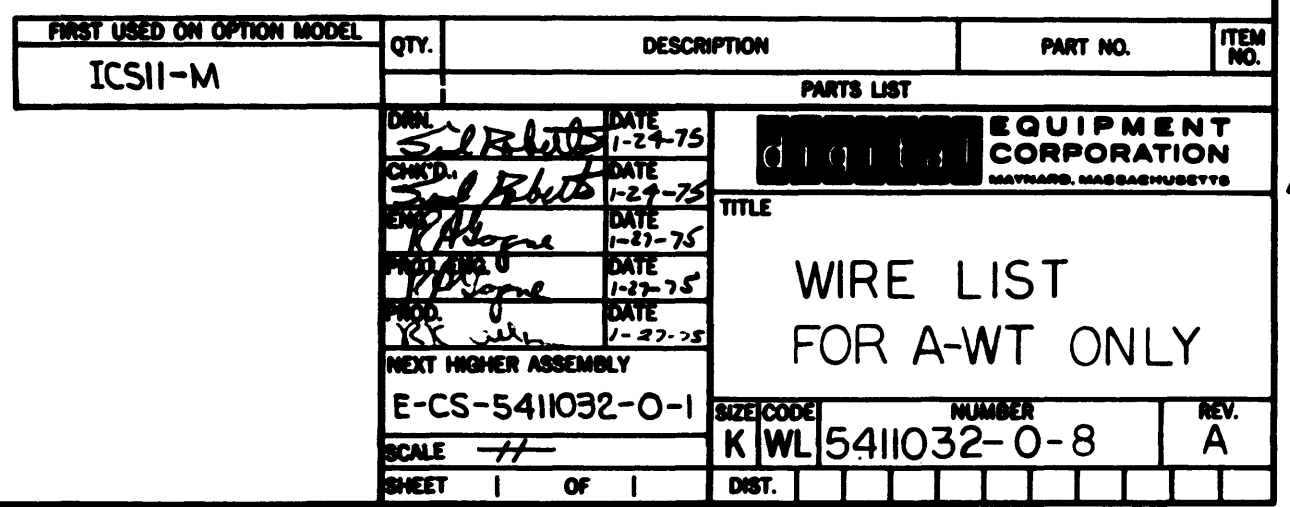 FIRST USED ON OPTION MODEL
ICS11-M
QTY.
DESCRIPTION
PART NO.
ITEM NO.
PARTS LIST
DRN.
DATE
1-24-75
CHK'D.
DATE
1-24-75
ENG.
DATE
1-27-75
PROD. ENG.
DATE
1-27-75
PROD.
DATE
1-27-75
NEXT HIGHER ASSEMBLY
E-CS-5411032-0-1
SCALE
SHEET 1 OF 1
digital
EQUIPMENT
CORPORATION
MAYNARD, MASSACHUSETTS
TITLE
WIRE LIST
FOR A-WT ONLY
SIZE CODE NUMBER REV.
K WL 5411032-0-8 A
DIST.